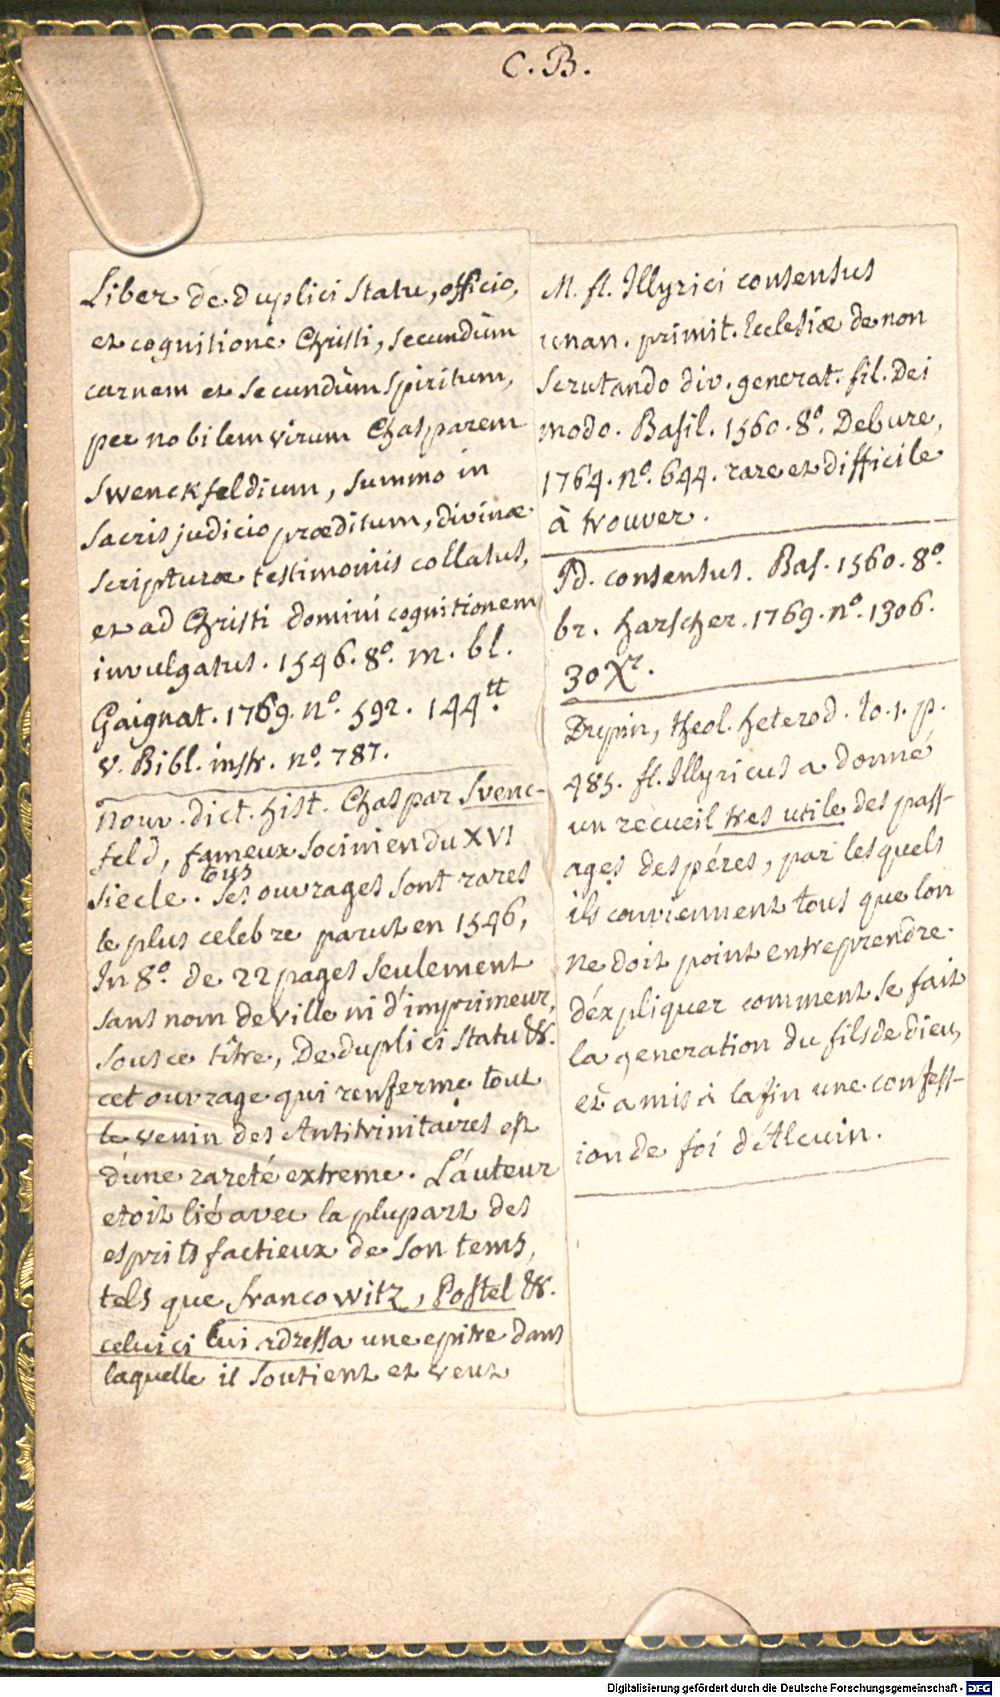 C. B.
Liber de duplici statu, officio,
et cognitione Christi, secundùm
carnem et secundùm spiritum,
per nobilem virum Chasparem
Swenckfeldium, summo in
sacris judicio præditum, divinæ
scripturæ testimoniis collatus,
et ad Christi domini cognitionem
invulgatus. 1546. 8º. m. bl.
Gaignat. 1769. nº. 592. 144tt.
v. Bibl. instr. nº. 787.
nouv. dict. hist. Chaspar Svenc-
feld, fameux socinien du XVI
siecle. tous Ses ouvrages sont rares
le plus celebre parut en 1546,
In 8º. de 22 pages seulement
sans nom de ville ni d'imprimeur,
sous ce tître, De duplici statu &c.
cet ouvrage qui renferme tout
le venin des Antitrinitaires est
d'une rareté extreme. L'auteur
etoit lié avec la plupart des
esprits factieux de son tems,
tels que francowitz, Postel &c.
celuici lui adressa une epitre dans
laquelle il soutient et veut
M. fl. Illyrici consensus
unan. primit. Ecclesiæ de non
scrutando div. generat. fil. Dei
modo. Basil. 1560. 8º. Debure,
1764. nº. 644. rare et difficile
à trouver.
Id. consensus. Bas. 1560. 8º.
br. harscher. 1769. nº. 1306.
30 Xr.
Dupin, theol. heterod. to. 1. p.
485. fl. Illyricus a donné
un recueil tres utile des pass-
ages des péres, par lesquels
ils conviennent tous que lon
ne doit point entreprendre
d'expliquer comment se fait
la generation du fils de dieu,
et a mis à la fin une confess-
ion de foi d'Alcuin.
Digitalisierung gefördert durch die Deutsche Forschungsgemeinschaft - DFG